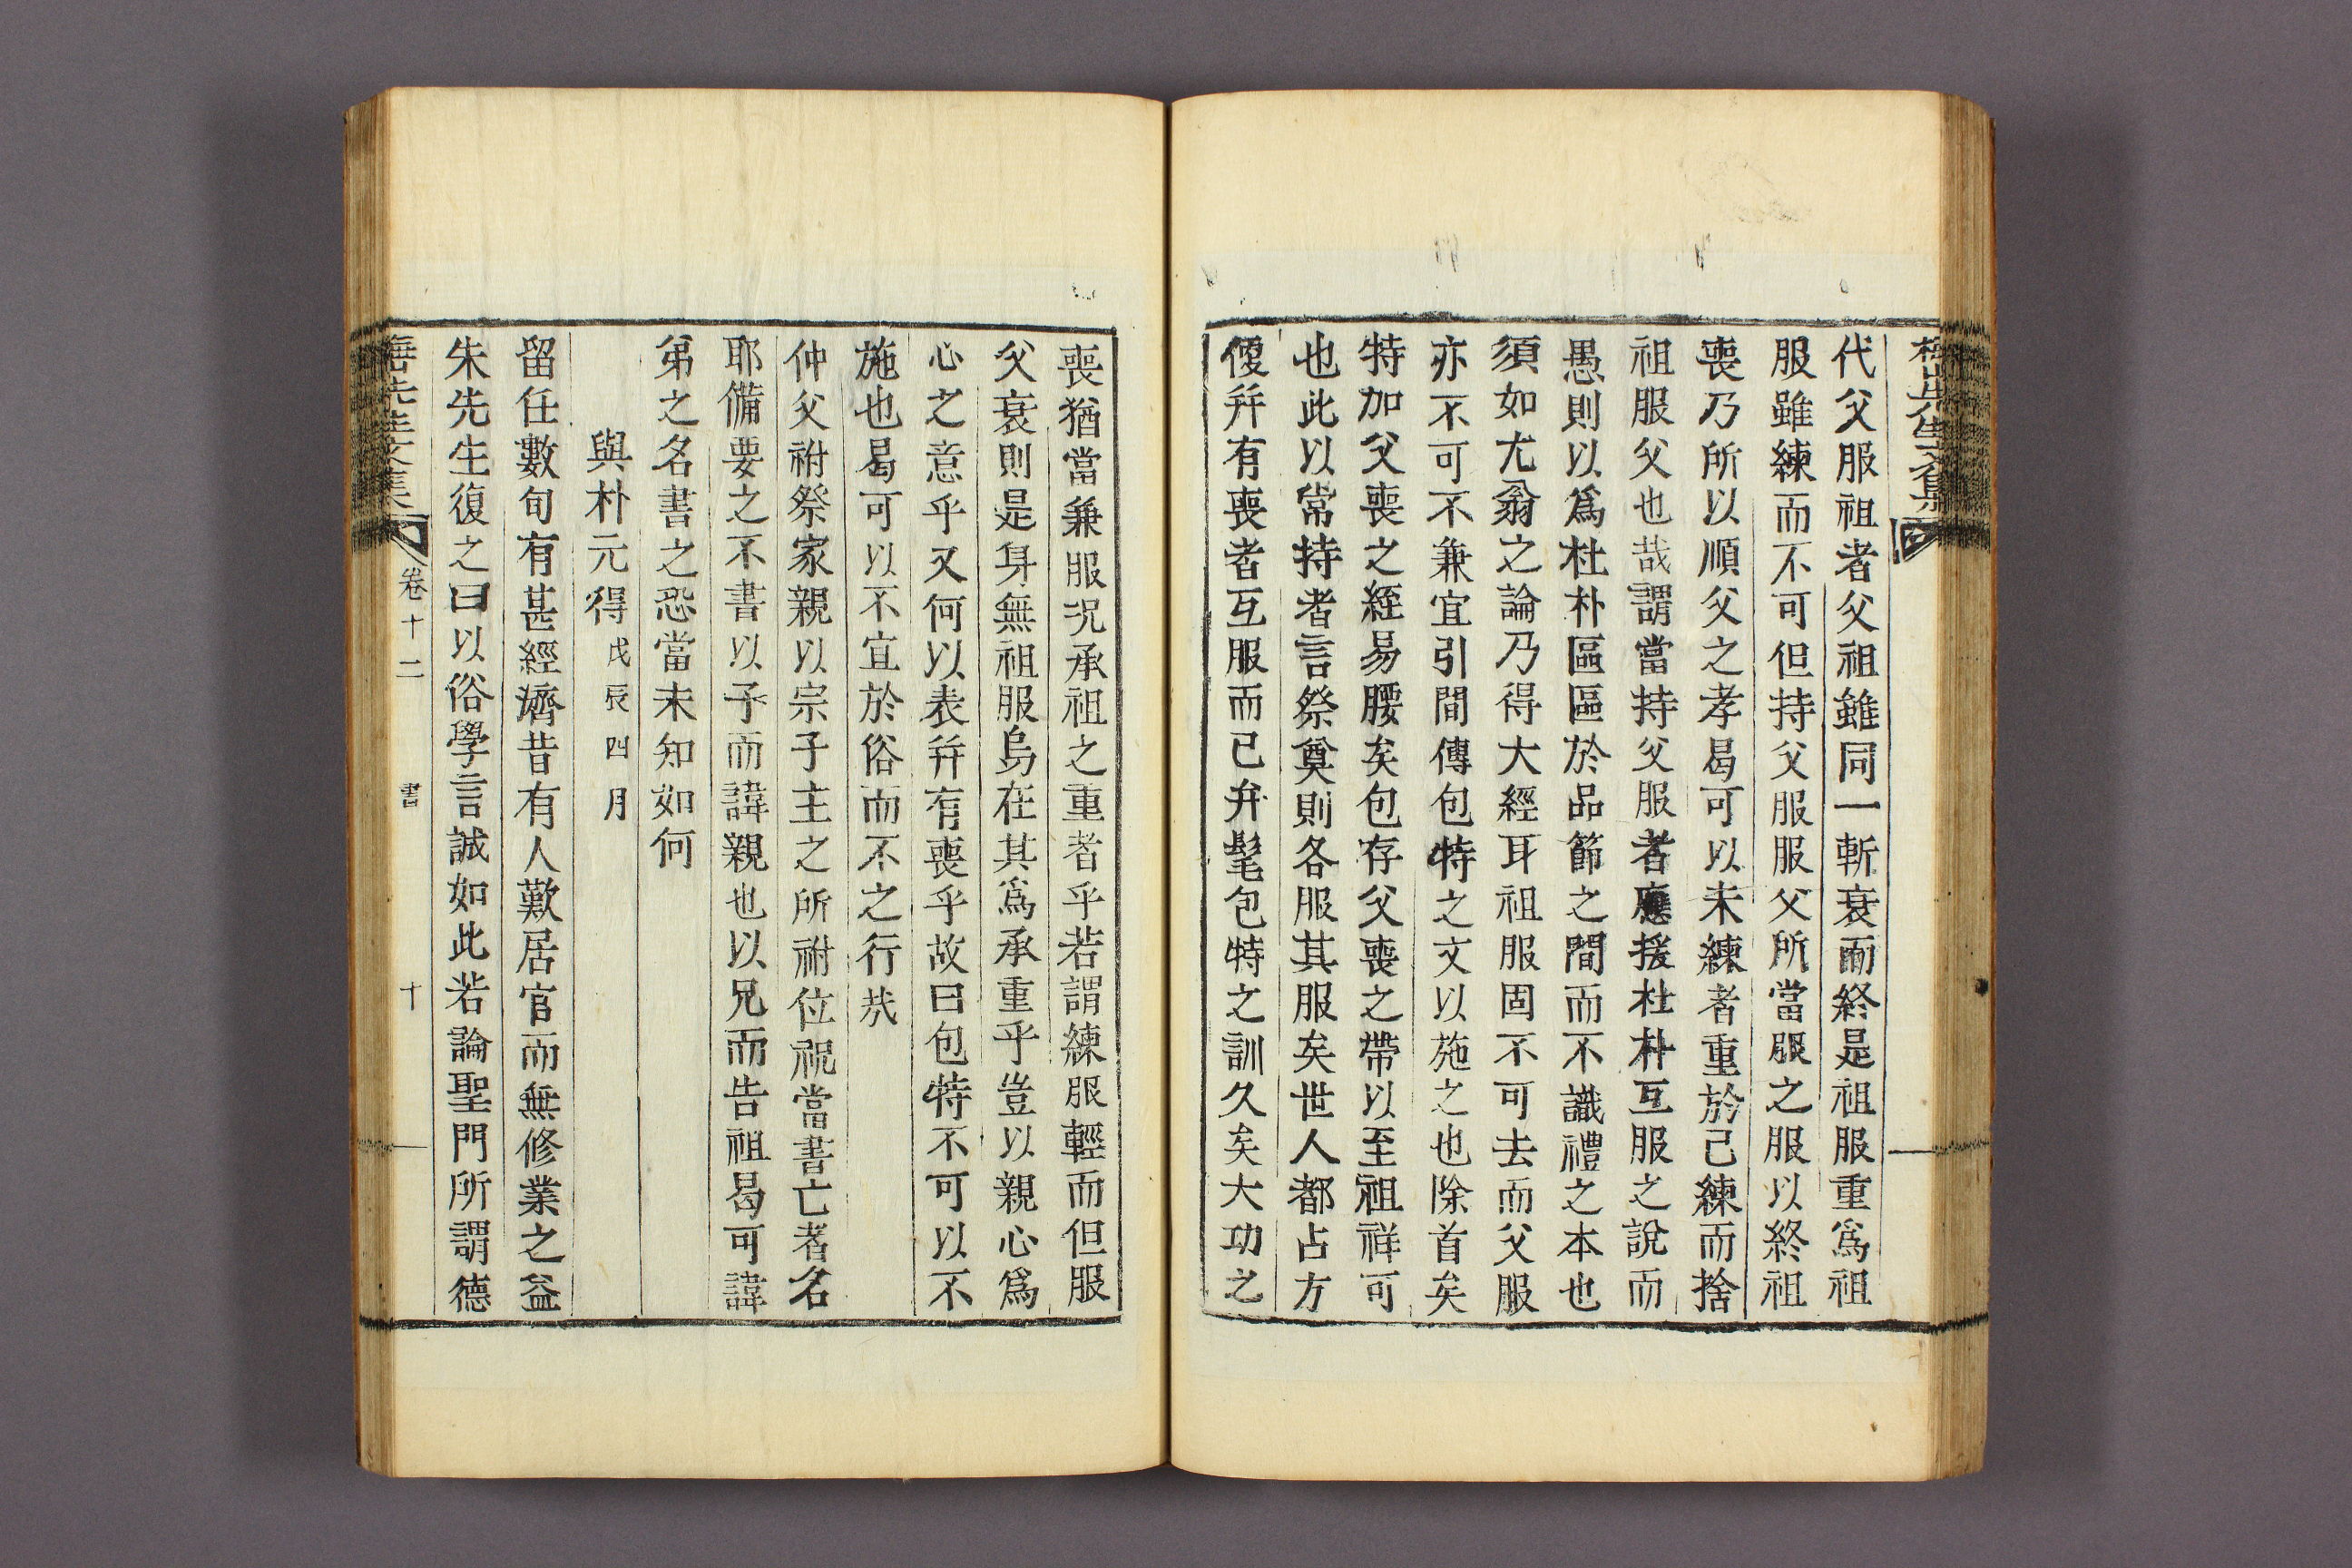 代父服祖者父祖雖同一斬衰而終是祖服重爲祖
服雖練而不可但持父服服父所當服之服以終祖
喪乃所以順父之孝曷可以未練者重於已練而捨
祖服父也哉謂當持父服者應援杜朴互服之說而
愚則以爲杜朴區區於品節之間而不識禮之本也
須如尤翁之論乃得大經耳祖服固不可去而父服
亦不可不兼宜引間傳包特之文以施之也除首矣
特加父喪之絰易腰矣包存父喪之帶以至祖祥可
也此以常持者言祭奠則各服其服矣世人都占方
便幷有喪者互服而已弁髦包特之訓久矣大功之
喪猶當兼服况承祖之重者乎若謂練服輕而但服
父衰則是身無祖服烏在其爲承重乎豈以親心爲
心之意乎又何以表幷有喪乎故曰包特不可以不
施也曷可以不宜於俗而不之行哉
仲父祔祭家親以宗子主之所祔位祝當書亡者名
耶備要之不書以子而諱親也以兄而告祖曷可諱
弟之名書之恐當未知如何
與朴元得 戊辰四月
留任數旬有甚經濟昔有人歎居官而無修業之益
朱先生復之曰以俗學言誠如此若論聖門所謂德
先生文集 卷十二 書 十